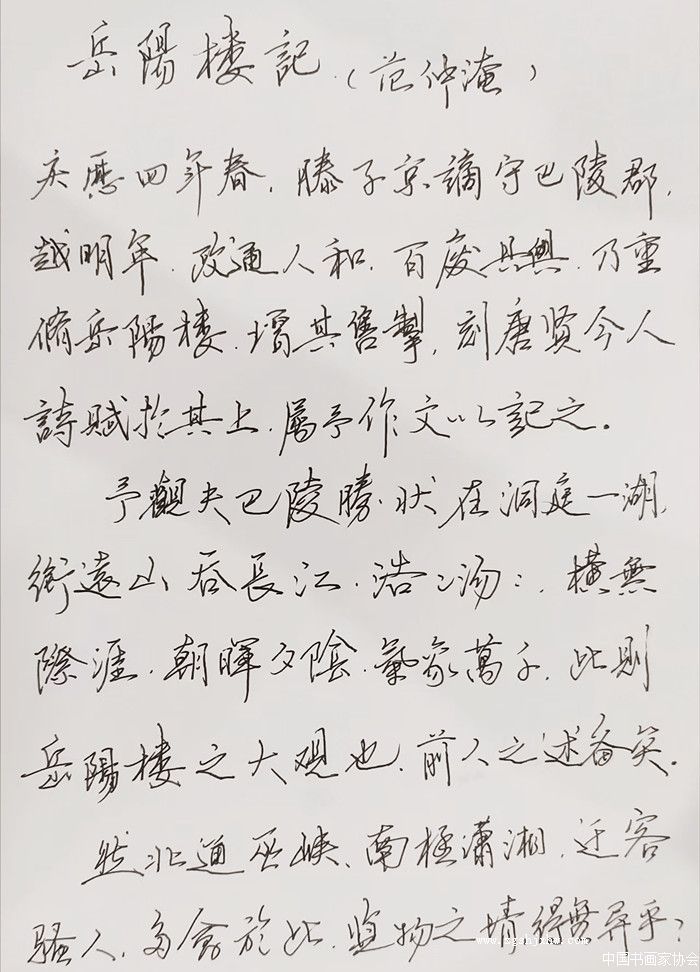 岳陽楼記（范仲淹）
庆歷四年春，滕子京謫守巴陵郡，
越明年，政通人和，百废具興，乃重
脩岳陽楼，增其舊製，刻唐贤今人
詩赋於其上，属予作文以記之。
予觀夫巴陵勝状在洞庭一湖，
銜遠山吞長江，浩々汤々，横無
際涯，朝暉夕陰，氣象萬千，此則
岳陽楼之大观也，前人之述备矣。
然北通巫峡、南極瀟湘，迁客
騷人，多會於此，览物之情得無异乎？
中国书画家协会